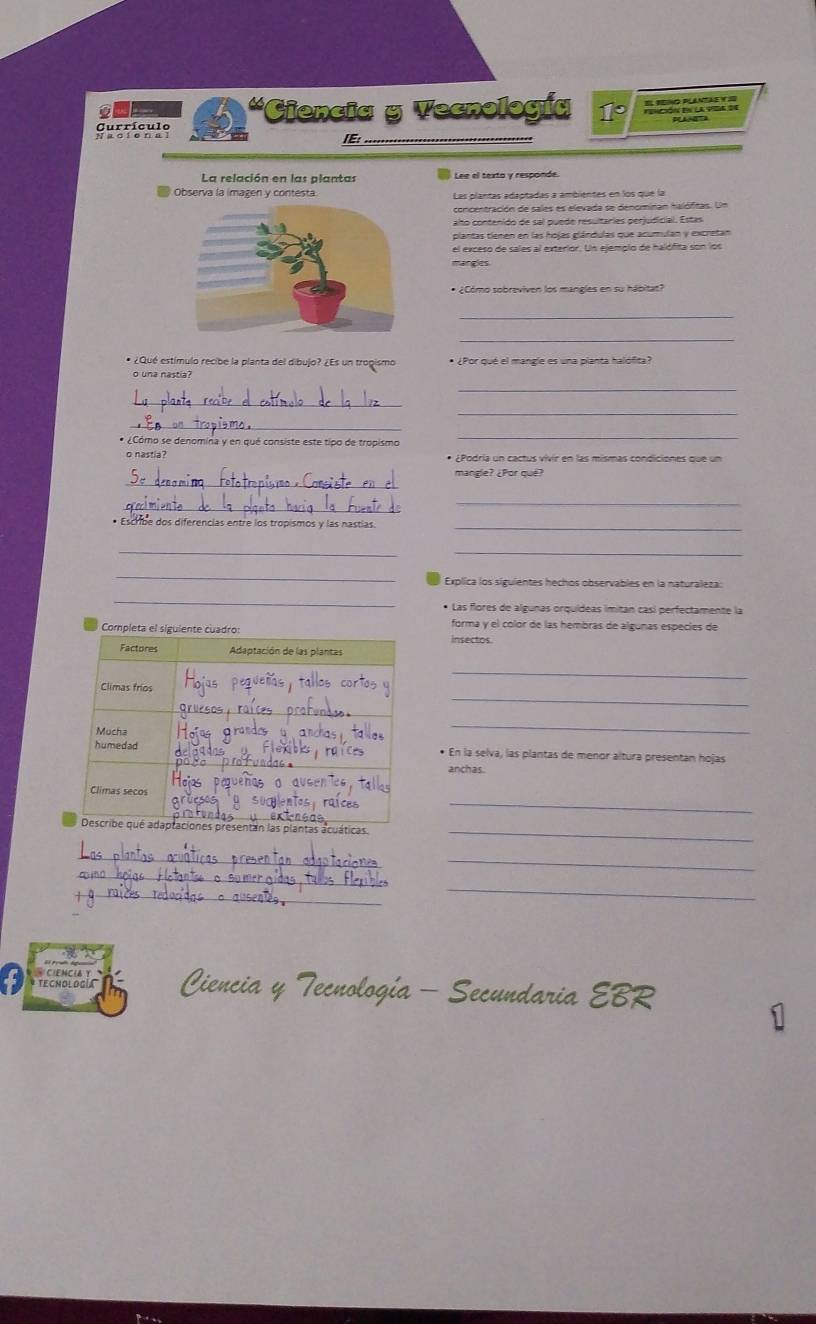 Currículo
Nacional
"Ciencia y Tecnología
1º
EL REINO PLANTAS Y SU
FUNCIÓN EN LA VIDA DE
PLANETA
IE:
La relación en las plantas
Observa la imagen y contesta.
• ¿Qué estímulo recibe la planta del dibujo? ¿Es un tropismo
o una nastia?
La planta recibe el estímulo de la luz
. Es un tropismo.
• ¿Cómo se denomina y en qué consiste este tipo de tropismo
o nastia?
Se denomina Fototropismo. Consiste en el
crecimiento de la planta hacia la fuente de
luz
• Escribe dos diferencias entre los tropismos y las nastias.
Completa el siguiente cuadro:
Factores Adaptación de las plantas
Climas fríos Hojas pequeñas, tallos cortos y
gruesos, raíces profundas.
Mucha humedad Hojas grandes y anchas, tallos
delgados y flexibles, raíces
poco profundas.
Climas secos Hojas pequeñas o ausentes, tallos
gruesos y suculentos, raíces
profundas y extensas.
Describe qué adaptaciones presentan las plantas acuáticas.
Las plantas acuáticas presentan adaptaciones
como hojas flotantes o sumergidas, tallos flexibles
y raíces reducidas o ausentes.
Lee el texto y responde.
Las plantas adaptadas a ambientes en los que la
concentración de sales es elevada se denominan halófitas. Un
alto contenido de sal puede resultarles perjudicial. Estas
plantas tienen en las hojas glándulas que acumulan y excretan
el exceso de sales al exterior. Un ejemplo de halófita son los
mangles.
• ¿Cómo sobreviven los mangles en su hábitat?
• ¿Por qué el mangle es una planta halófita?
• ¿Podría un cactus vivir en las mismas condiciones que un
mangle? ¿Por qué?
Explica los siguientes hechos observables en la naturaleza:
• Las flores de algunas orquídeas imitan casi perfectamente la
forma y el color de las hembras de algunas especies de
insectos.
• En la selva, las plantas de menor altura presentan hojas
anchas.
CIENCIA Y
TECNOLOGÍA
Ciencia y Tecnología – Secundaria EBR
1